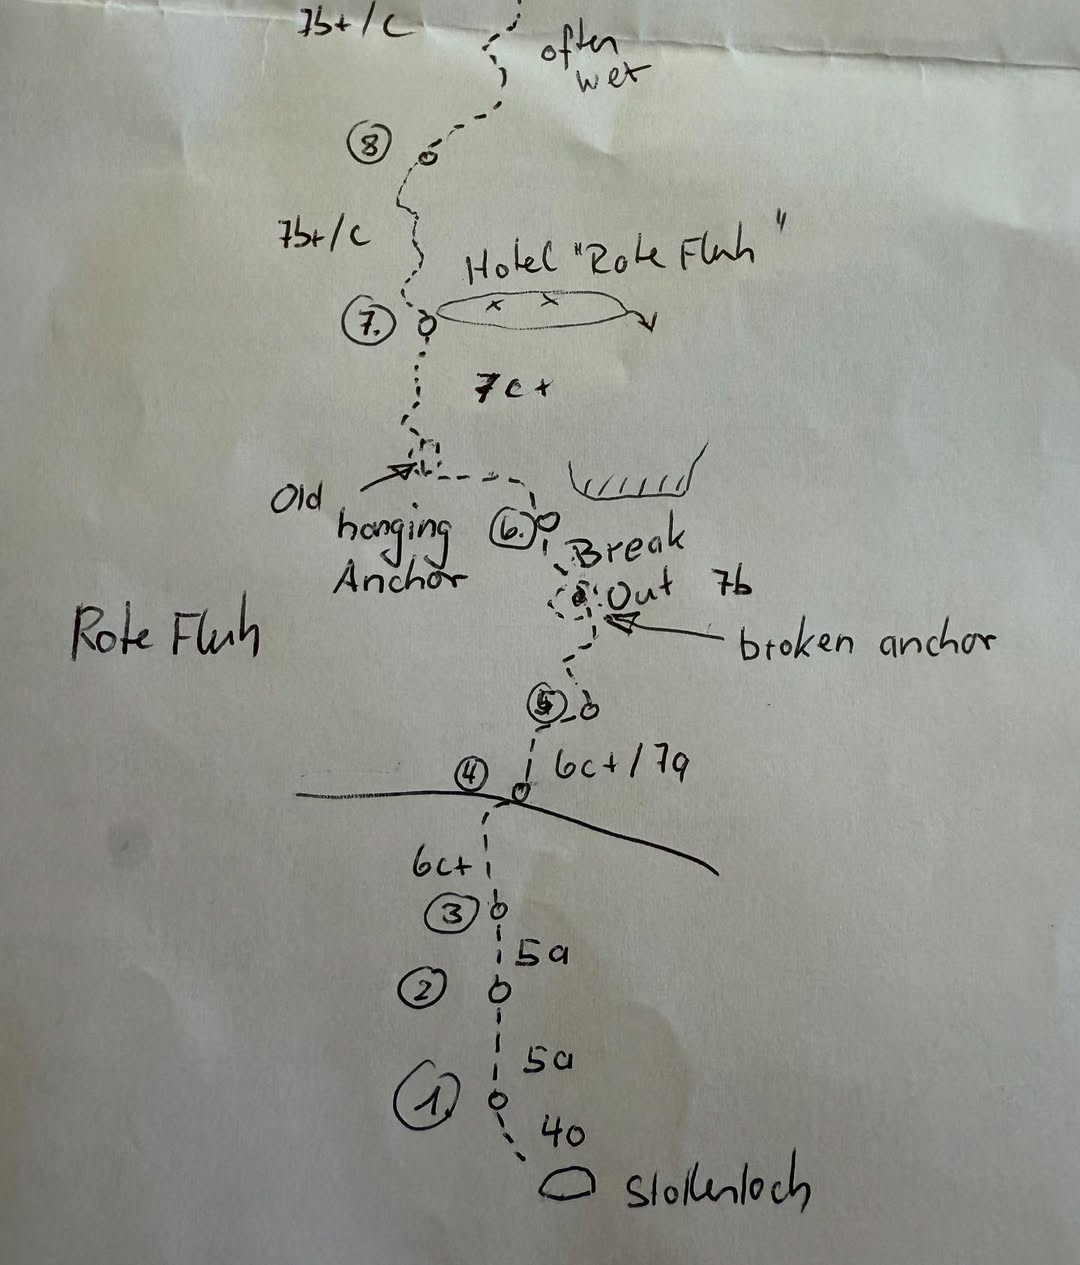 7b+/c
often
wet
8
7b+/c
Hotel "Rote Fluh"
7.
7c+
Old
hanging
Anchor
6.
Break
Out 7b
broken anchor
Rote Fluh
5
6c+/7a
4
6c+
3
5a
2
5a
1.
40
Stollenloch